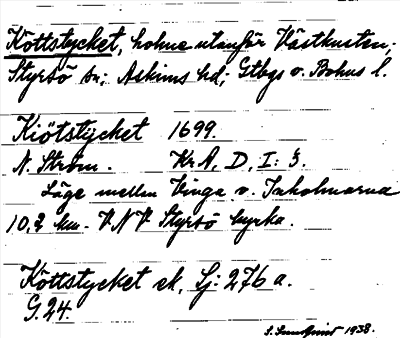 Köttstycket, holme utanför Västkusten;
Styrsö sn; Askims hd; Gtbgs o. Bohus l.
Kiötstÿcket 1699.
N. Ström. Kr. A, D, I: 3.
Läge mellan Vinga o. Inholmarna
10,2 km. V.N.V. Styrsö kyrka.
Köttstycket ek, Sj: 276 a.
G. 24.
1938.